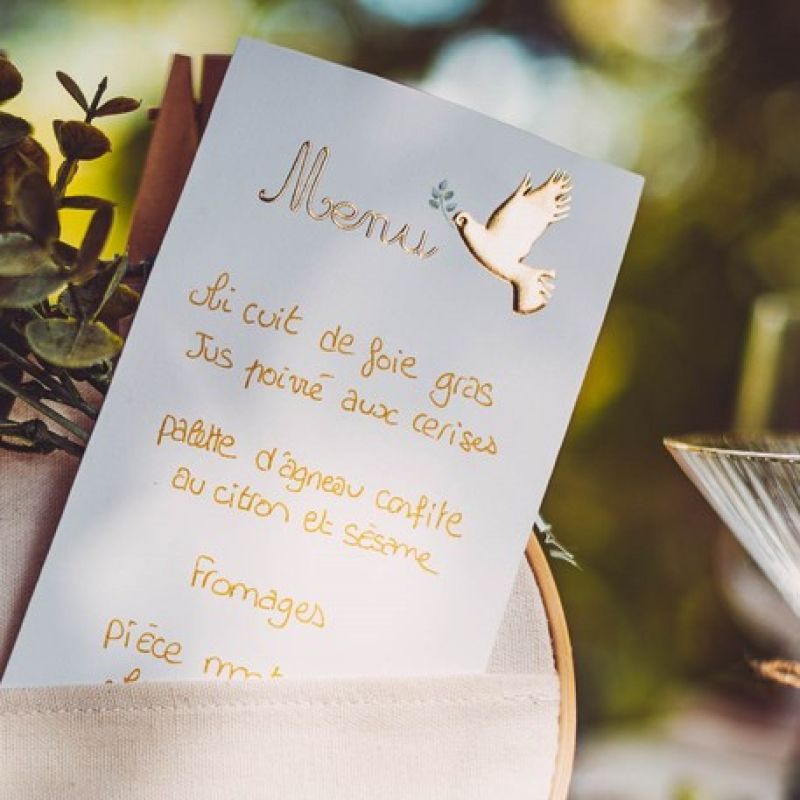 Menu
Mi cuit de foie gras
Jus poivré aux cerises
palette d'agneau confite
au citron et sésame
Fromages
pièce